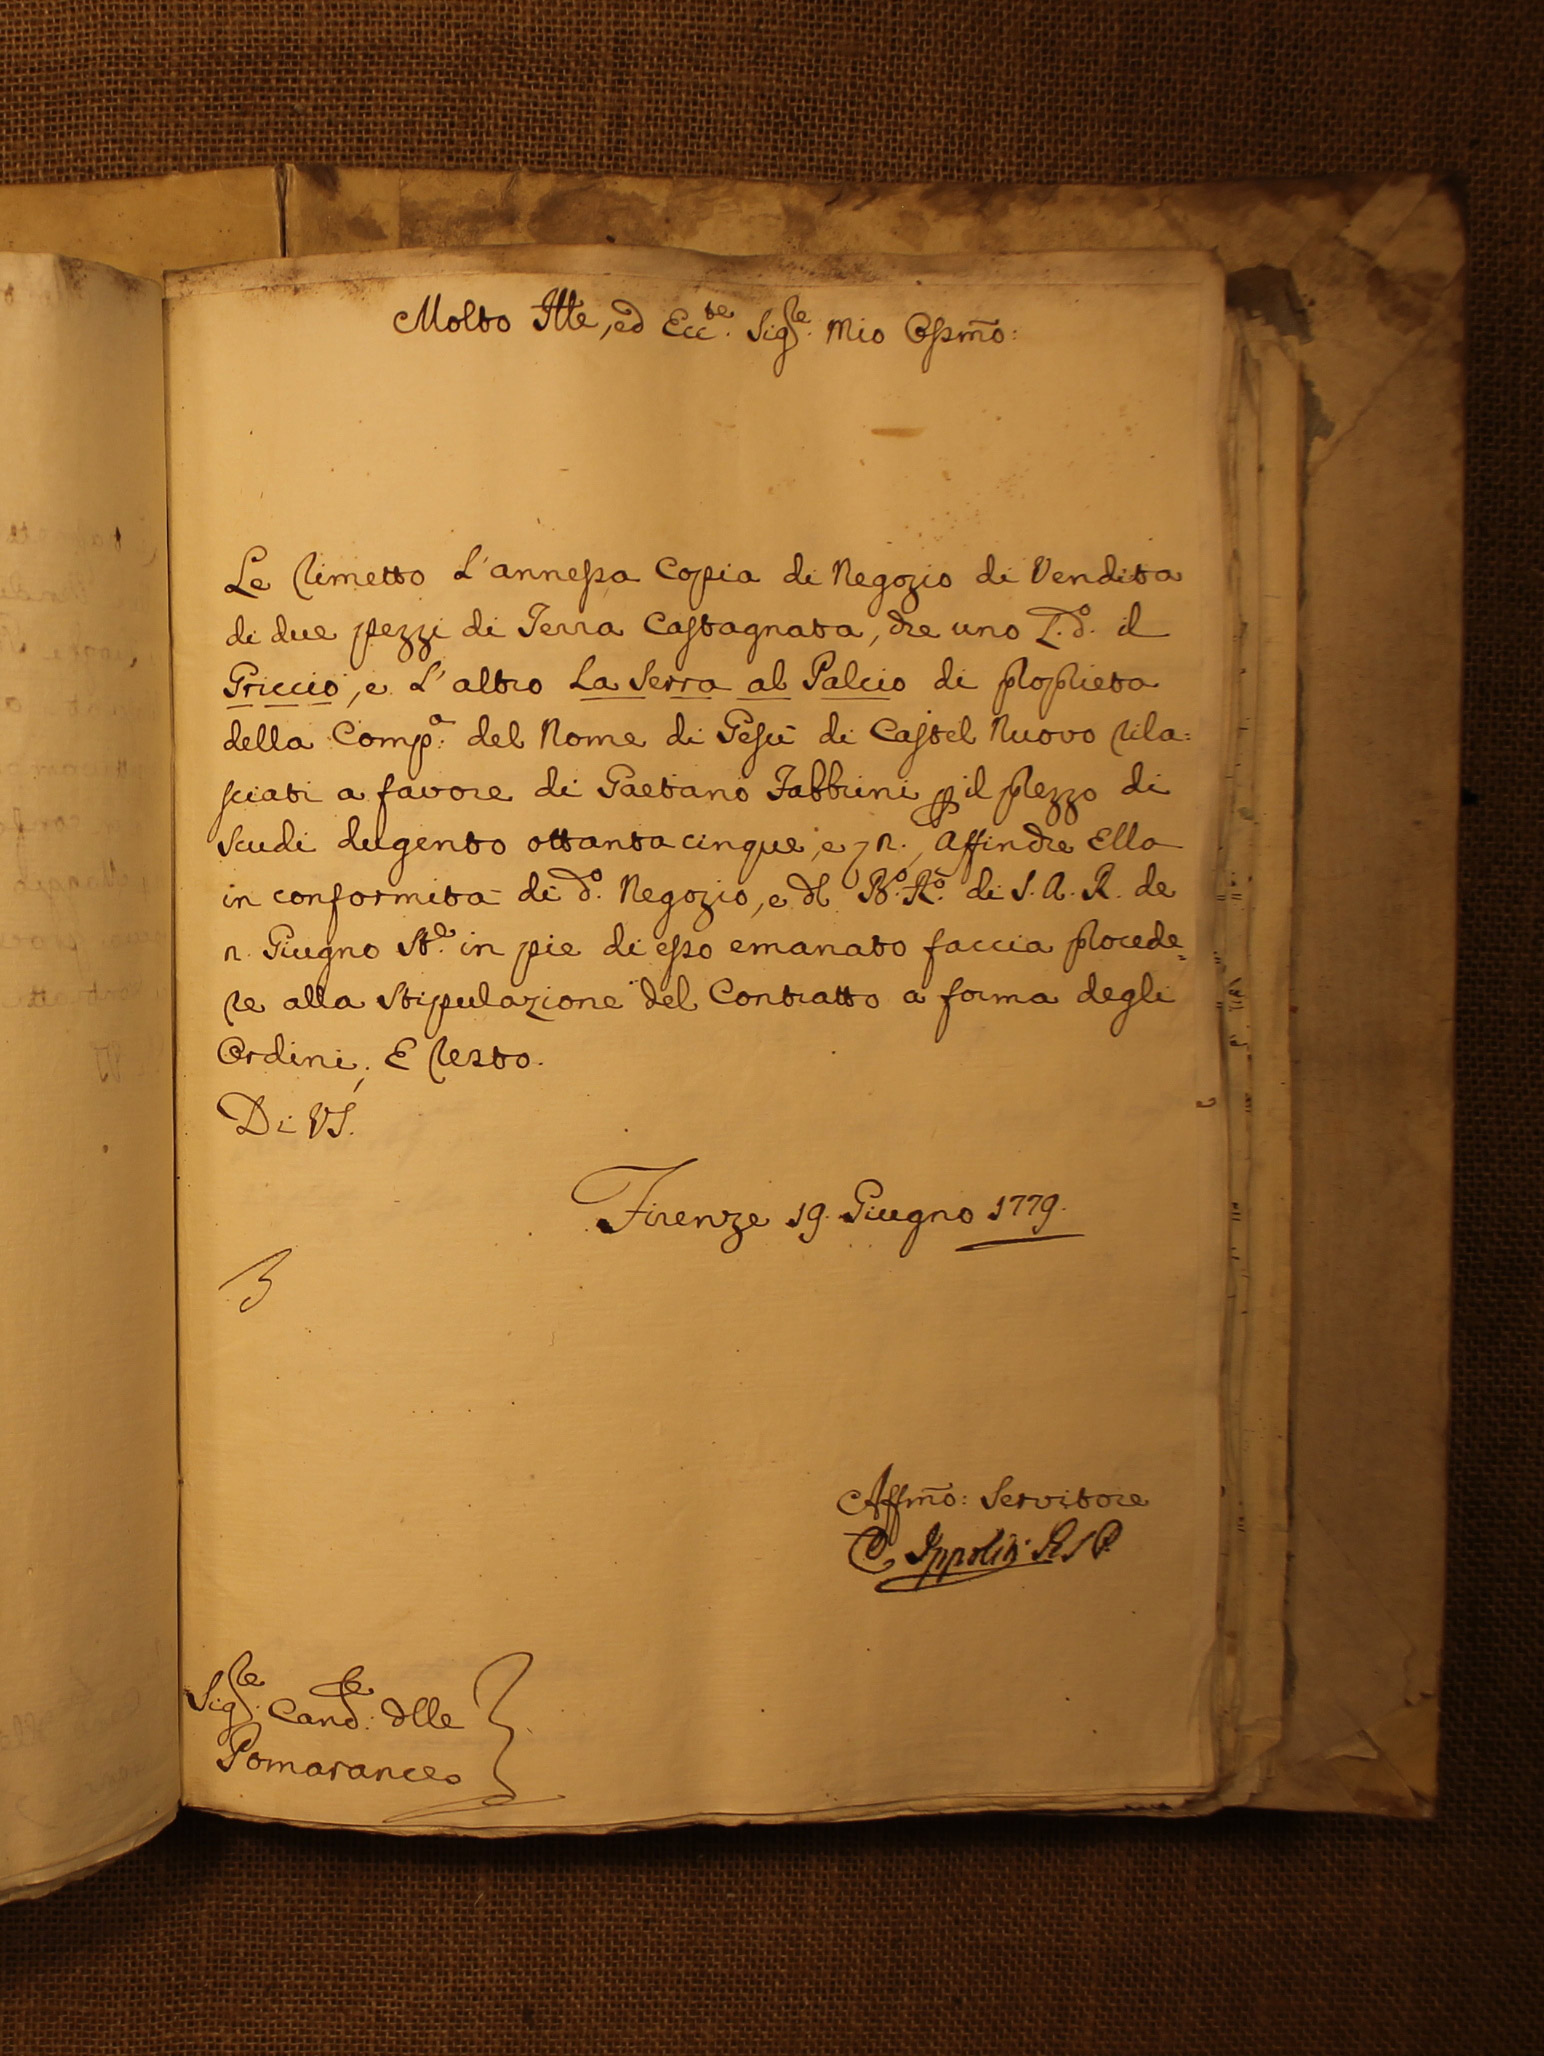 Molto Ill.e, ed Ecc.te Sig.re Mio Oss.mo:
Le rimetto l'annessa Copia di Negozio di Vendita
di due pezzi di Terra Castagnata, che uno L.D. il
Griccio, e l'altro La Serra al Palcio di proprietà
della Comp.a del Nome di Gesù di Castel Nuovo rila:
sciati a favore di Gaetano Fabbrini p il prezzo di
Scudi dugento ottantacinque, e Affinche Ella
in conformità di d.o Negozio, e del B.o R.o di S.A.R. de
Giugno St.e in pie di esso emanato faccia procede=
re alla Stipulazione del Contratto a forma degli
Ordini; E resto.
Di VS.
Firenze 19. Giugno 1779.
Aff.mo: Servitore
Ippoliti
Sig.re Canc.re delle
Pomarance